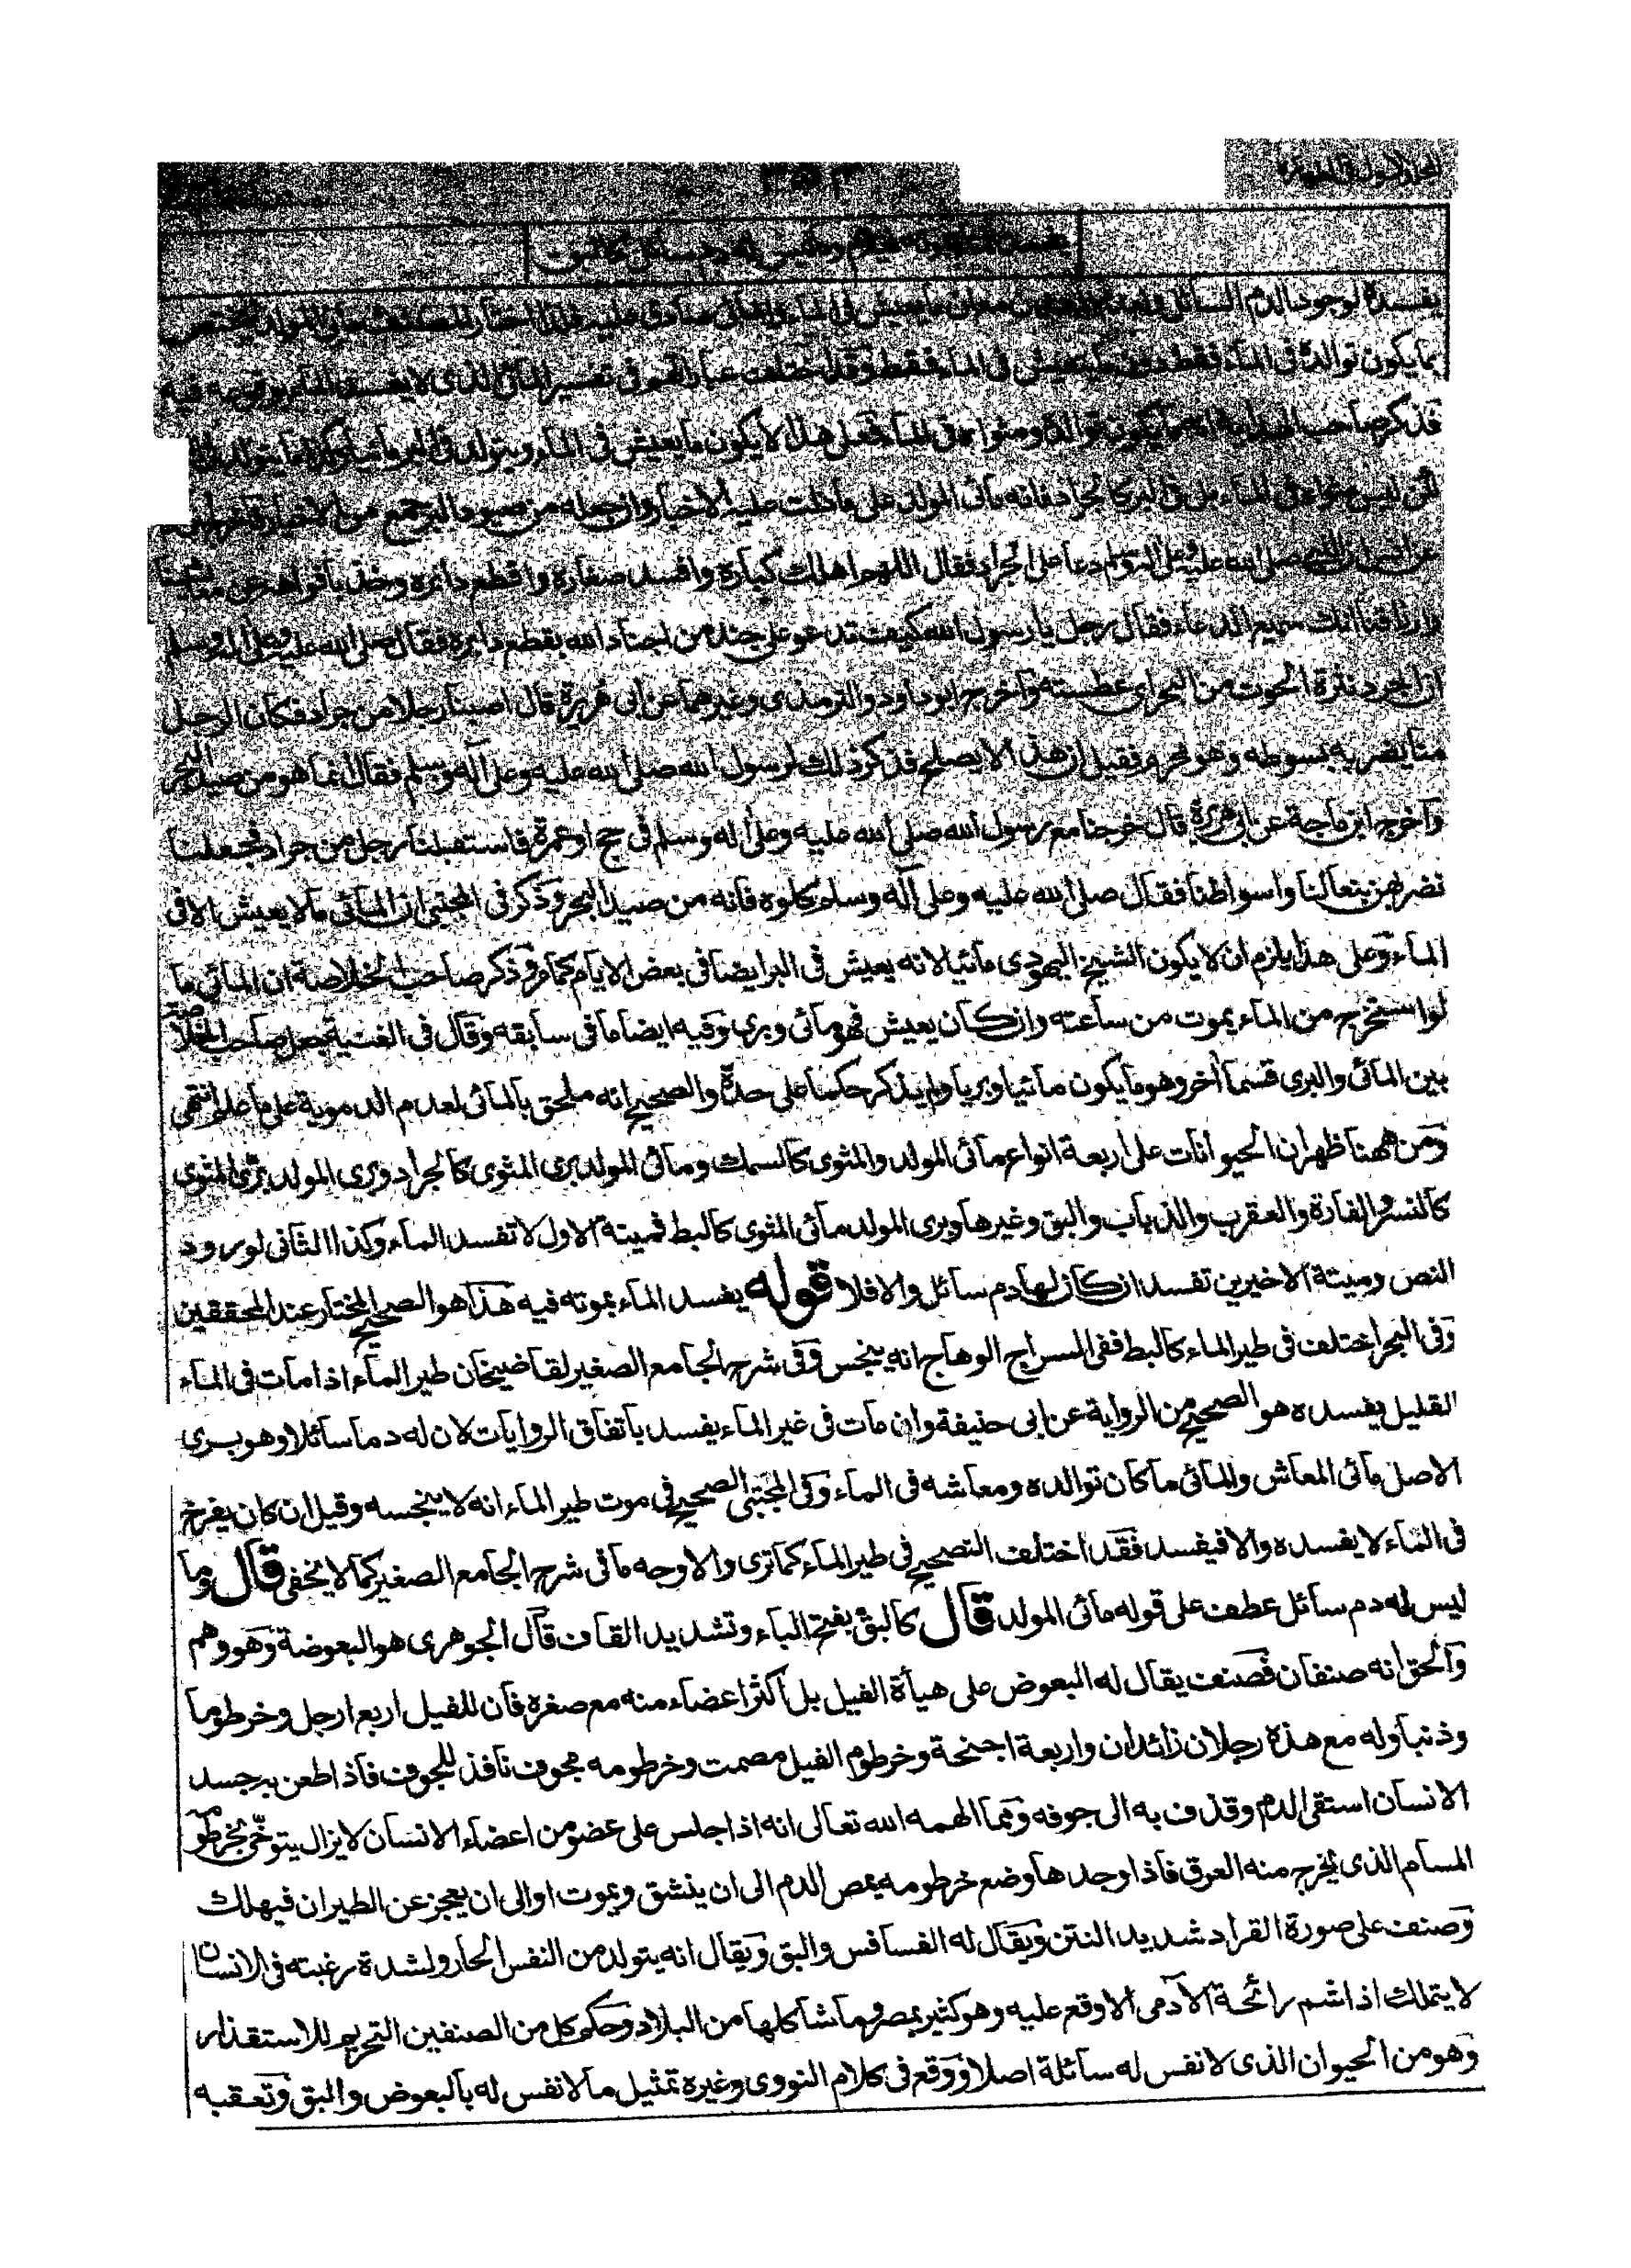 المجلد الاول فى الطهارة
٣٩٣
يفسده لوجود الدم السائل
بما يكون توالده فى الماء فقط يعيش فى الماء فقط وقد اختلفت عباراتهم فى تفسير المائى الذى لا يفسد الماء بوقوعه فيه
فذكر صاحب الهداية انه ما يكون توالده ومثواه فى الماء فعلى هذا لا يكون ما يعيش فى الماء ويتولد فى البر مائيا
ليس مثواه فى الماء بل فى البر كالجراد فانه مائى المولد على ما دلت عليه الاخبار
صلى الله عليه وعلى اله وسلم دعا على الجراد فقال اللهم اهلك كباره وافسد صغاره واقطع دابره وخذ بافواهه عن معايشنا
وارزاقنا انك سميع الدعاء فقال رجل يا رسول الله كيف تدعو على جند من اجناد الله بقطع دابره فقال صلى الله عليه وعلى اله وسلم
ان الجراد نثرة الحوت من البحر اى عطسته واخرج ابو داود والترمذى وغيرهما عن ابى هريرة قال اصبنا رجلا من جراد فكان الرجل
منا يضربه بسوطه وهو محرم فقيل ان هذا لا يصلح فذكر ذلك لرسول الله صلى الله عليه وعلى آله وسلم فقال انما هو من صيد البحر
وآخرج ابن ماجة عن ابى هريرة قال خرجنا مع رسول الله صلى الله عليه وعلى اله وسلم فى حج او عمرة فاستقبلنا رجل من جراد فجعلنا
نضربهن بنعالنا واسواطنا فقال صلى الله عليه وعلى آله وسلم كلوه فانه من صيد البحر وذكر فى المجتبى ان المائى ما لا يعيش الا فى
الماء وعلى هذا يلزم ان لا يكون الشيخ اليهودى مائيا لانه يعيش فى البر ايضا فى بعض الايام كما مر وذكر صاحب الخلاصة ان المائى ما
لو استخرج من الماء يموت من ساعته وان كان يعيش فهو مائى وبرى وفيه ايضا ما فى سابقه وقال فى الغنية جعل صاحب الخلاصة
بين المائى والبرى قسما آخر وهو ما يكون مائيا وبريا ولم يذكر حكما على حدة والصحيح انه ملحق بالمائى لعدم الدموية على ما علم انتهى
ومن ههنا ظهر ان الحيوانات على اربعة انواع مائى المولد والمثوى كالسمك ومائى المولد برى المثوى كالجراد وبرى المولد برى المثوى
كالنسر والفارة والعقرب والذباب والبق وغيرها وبرى المولد مائى المثوى كالبط فميتة الاول لا تفسد الماء وكذا الثانى لورود
النص وميتة الاخيرين تفسد ان كان لها دم سائل والا فلا قوله يفسد الماء بموته فيه هذا هو الصحيح المختار عند المحققين
وفى البحر اختلف فى طير الماء كالبط ففى السراج الوهاج انه ينجس وفى شرح الجامع الصغير لقاضيخان طير الماء اذا مات فى الماء
القليل يفسده هو الصحيح من الرواية عن ابى حنيفة وان مات فى غير الماء يفسد باتفاق الروايات لان له دما سائلا وهو برى
الاصل مائى المعاش والمائى ما كان توالده ومعاشه فى الماء وفى المجتبى الصحيح فى موت طير الماء انه لا ينجسه وقيل ان كان يفرخ
فى الماء لا يفسده والا فيفسد فقد اختلف التصحيح فى طير الماء كما ترى والاوجه ما فى شرح الجامع الصغير كما لا يخفى قال وما
ليس له دم سائل عطف على قوله مائى المولد قال كالبق بفتح الباء وتشديد القاف قال الجوهرى هو البعوضة وهو وهم
والحق انه صنفان فصنف يقال له البعوض على هيأة الفيل بل اكثر اعضاء منه مع صغره فان للفيل اربع ارجل وخرطوما
وذنبا وله مع هذه رجلان زائدان واربعة اجنحة وخرطوم الفيل مصمت وخرطومه مجوف نافذ للجوف فاذا طعن به جسد
الانسان استقى الدم وقذف به الى جوفه ومما الهمه الله تعالى انه اذا جلس على عضو من اعضاء الانسان لا يزال يتوخى بخرطومه
المسام الذى يخرج منه العرق فاذا وجدها وضع خرطومه يمص الدم الى ان ينشق ويموت او الى ان يعجز عن الطيران فيهلك
وصنف على صورة القراد شديد النتن ويقال له الفسافس والبق ويقال انه يتولد من النفس الحار ولشدة رغبته فى الانسان
لا يتملك اذا شم رائحة الآدمى الا وقع عليه وهو كثير بمصر وما شاكلها من البلاد وحكم كل من الصنفين التحريم للاستقذار
وهو من الحيوان الذى لا نفس له سائلة اصلا ووقع فى كلام النووى وغيره تمثيل ما لا نفس له بالبعوض والبق وتعقبه